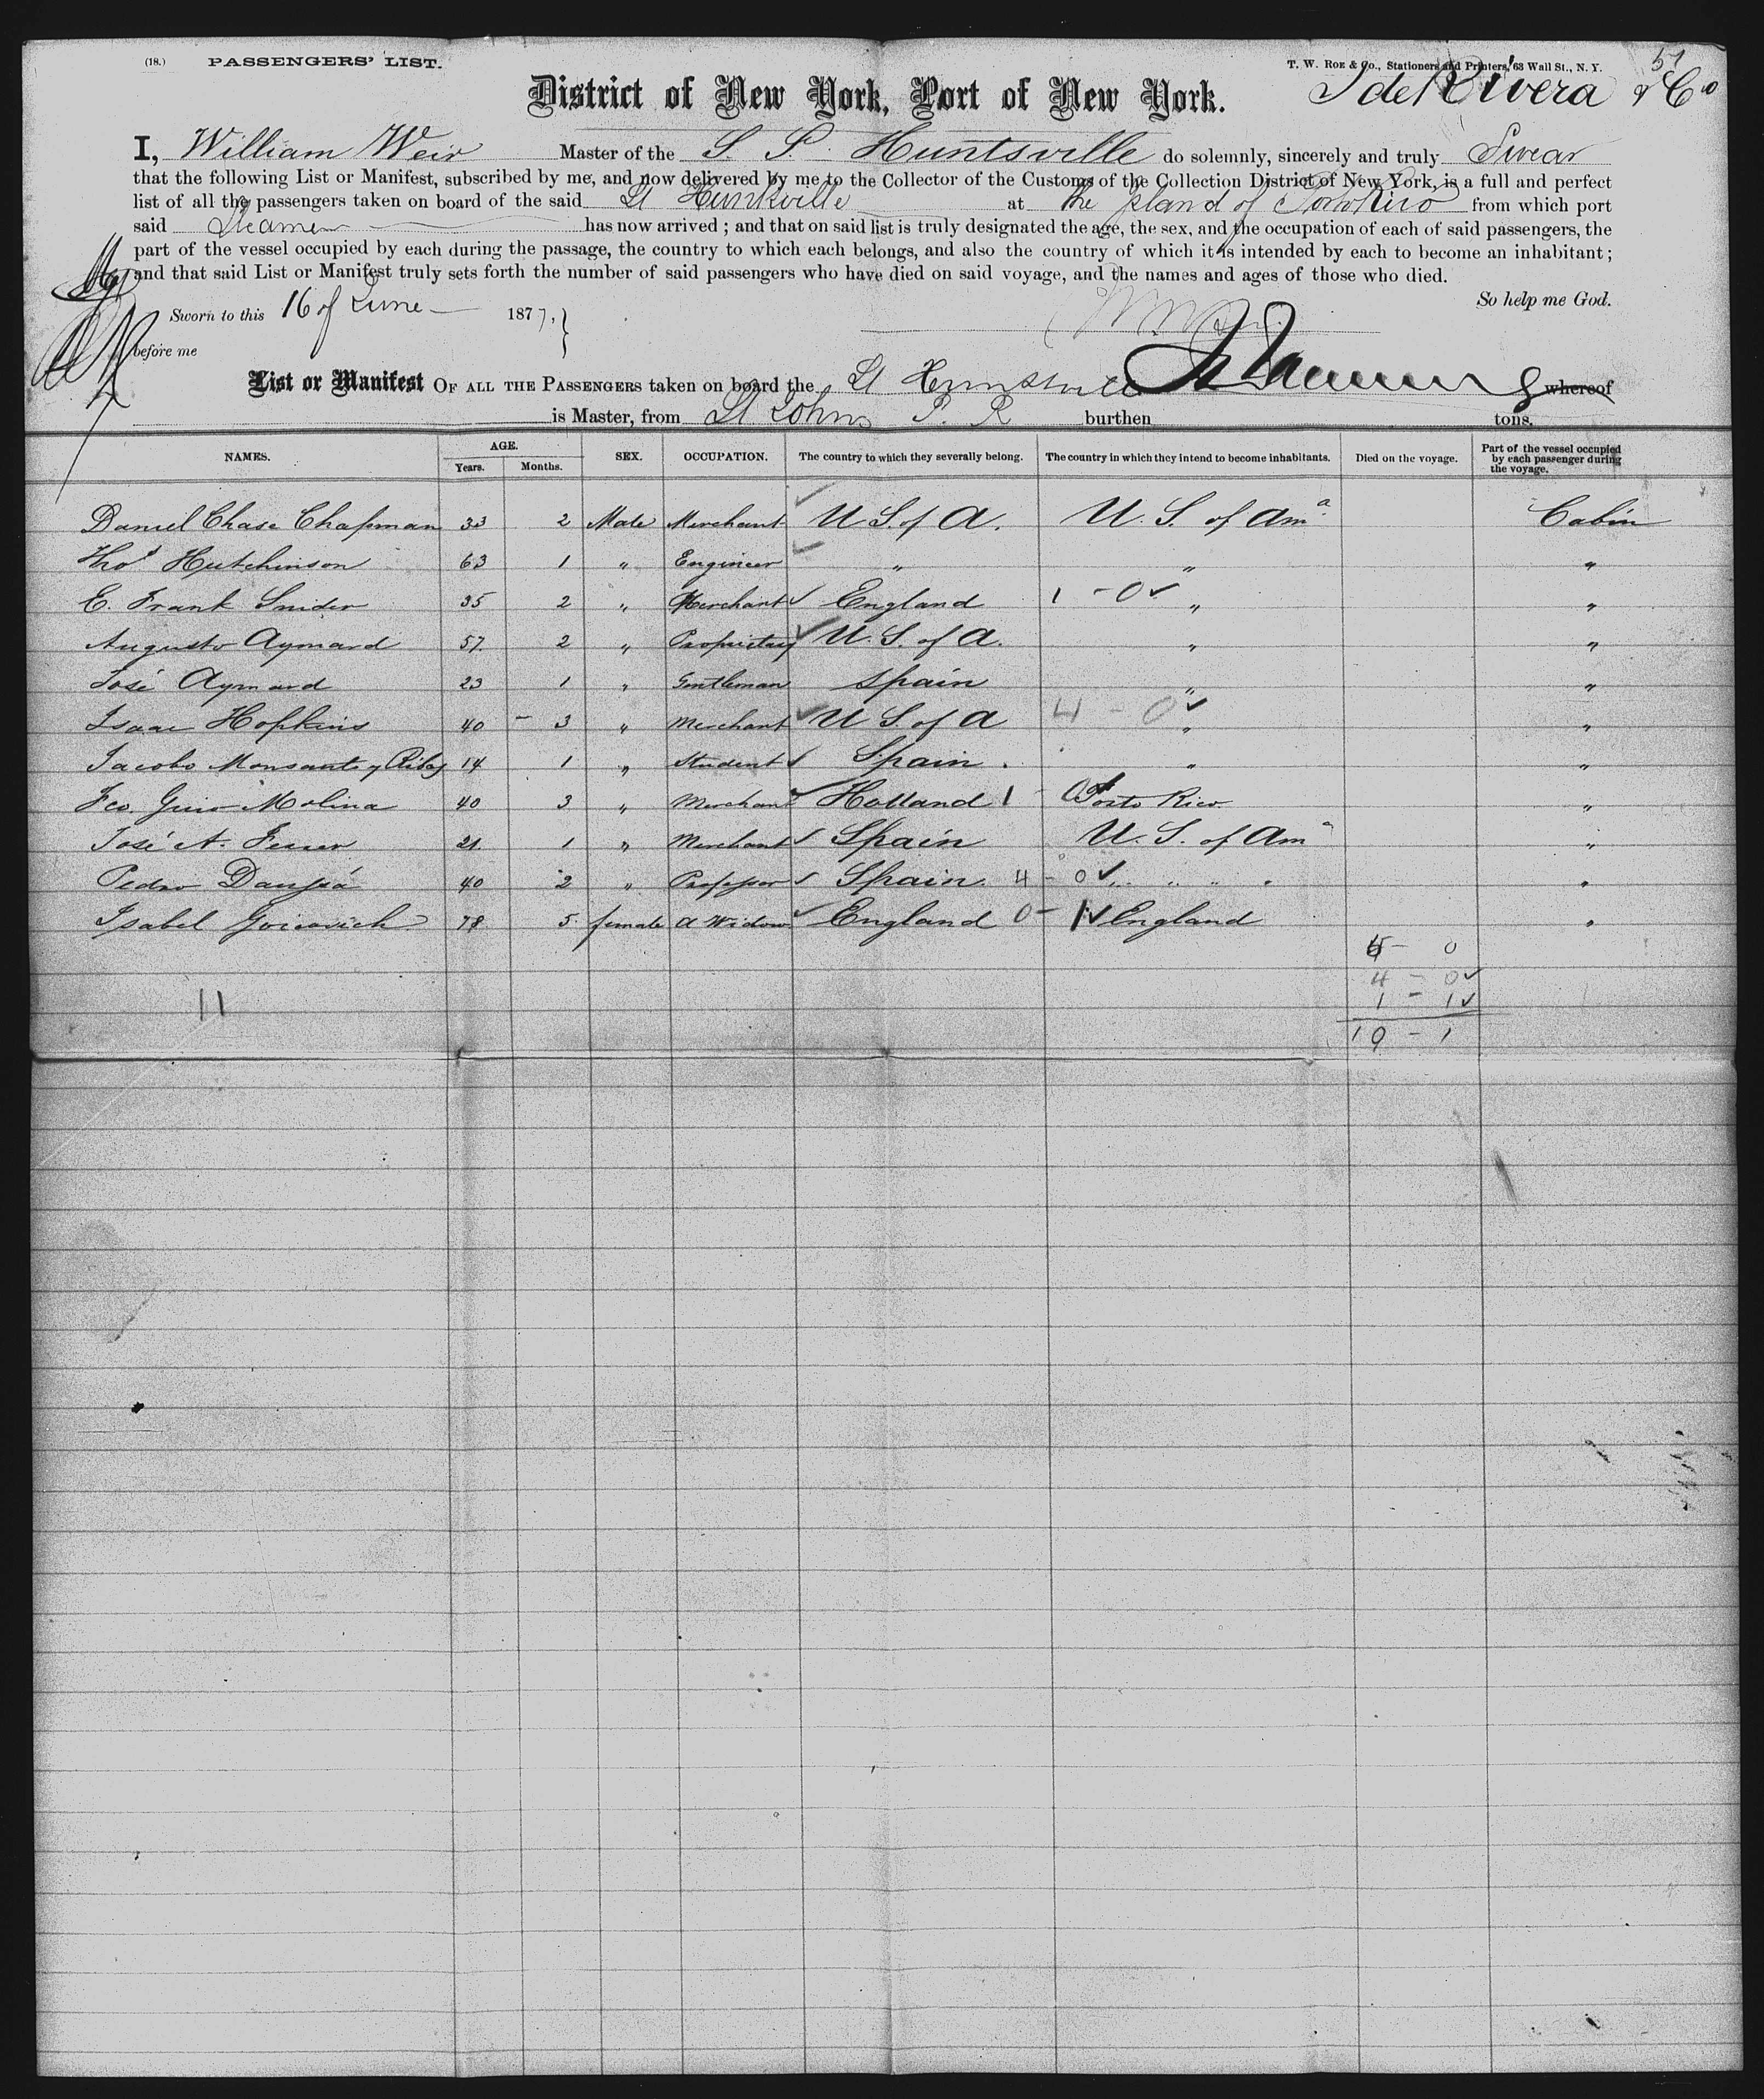 (18.) PASSENGERS' LIST.
T. W. Roe & Co., Stationers and Printers, 63 Wall St., N. Y.
57
District of New York, Port of New York.
J de Rivera & Co
I, William Weir Master of the S. S. Huntsville do solemnly, sincerely and truly Swear
that the following List or Manifest, subscribed by me, and now delivered by me to the Collector of the Customs of the Collection District of New York, is a full and perfect
list of all the passengers taken on board of the said St Huntsville at the Island of Porto Rico from which port
said Steamer has now arrived ; and that on said list is truly designated the age, the sex, and the occupation of each of said passengers, the
part of the vessel occupied by each during the passage, the country to which each belongs, and also the country of which it is intended by each to become an inhabitant ;
and that said List or Manifest truly sets forth the number of said passengers who have died on said voyage, and the names and ages of those who died.
So help me God.
Sworn to this 16 of June 1877,
before me
List or Manifest OF ALL THE PASSENGERS taken on board the St Huntsville whereof
is Master, from St. Johns P. R burthen tons.
NAMES. AGE. SEX. OCCUPATION. The country to which they severally belong. The country in which they intend to become inhabitants. Died on the voyage. Part of the vessel occupied by each passenger during the voyage.
Years. Months.
Daniel Chase Chapman 33 2 Male Merchant U S. of A. U. S. of Ama Cabin
Thos Hutchinson 63 1 " Engineer " " "
E. Frank Snider 35 2 " Merchant England 1 - 0 " "
Augusto Aymard 57. 2 " Proprietary U. S. of A. " "
José Aymard 23 1 " Gentleman Spain " "
Isaac Hopkins 40 - 3 " Merchant U S. of A 4 - 0 " "
Jacobo Monsanto y Ribas 14 1 " Student Spain. " "
Fco. Molina 40 3 " Merchant Holland 1 - 0 Porto Rico "
José A. Ferrer 21. 1 " Merchant Spain U. S. of Ama "
Pedro 40 2 " Professor Spain. 4 - 0 " " " " "
Isabel 78 5. female A Widow England 0 - 1 England "
5 - 0
4 - 0
11
1 - 1
10 - 1